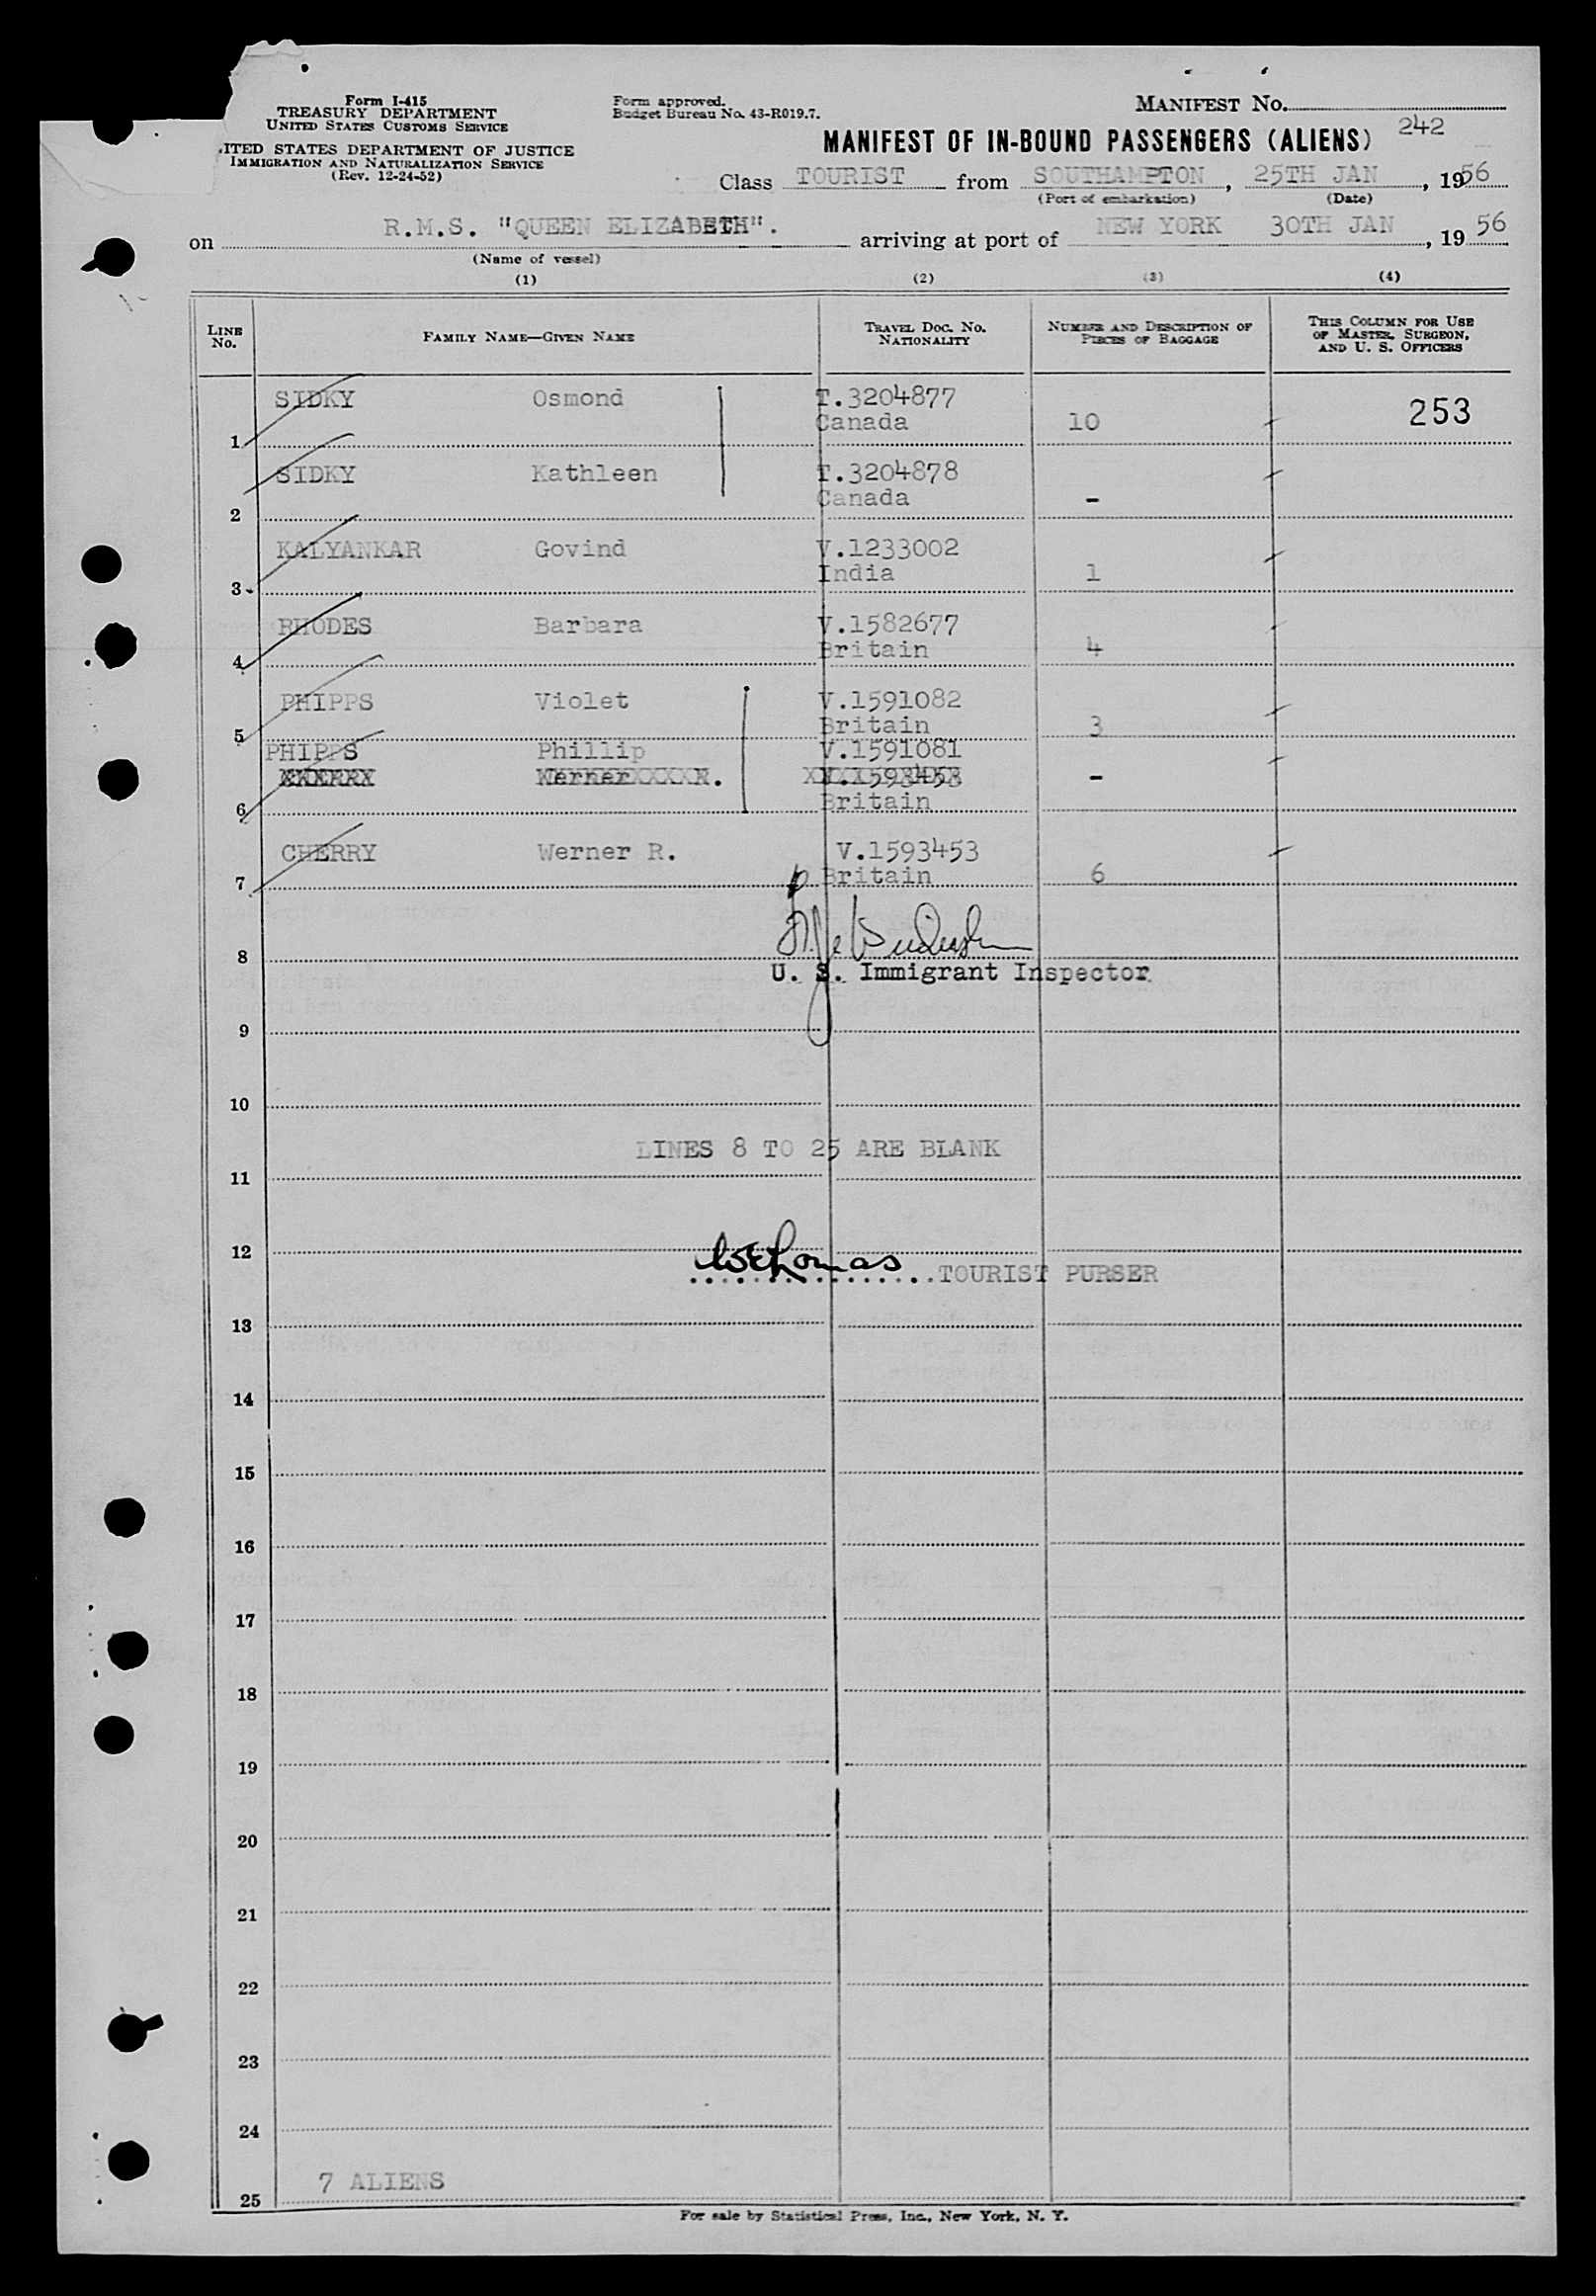 Form I-415
TREASURY DEPARTMENT
UNITED STATES CUSTOMS SERVICE
ITED STATES DEPARTMENT OF JUSTICE
IMMIGRATION AND NATURALIZATION SERVICE
(Rev. 12-24-52)
Form approved.
Budget Bureau No. 43-R019.7.
MANIFEST No.
242
MANIFEST OF IN-BOUND PASSENGERS (ALIENS)
Class TOURIST from SOUTHAMPTON, 25TH JAN, 1956
(Port of embarkation) (Date)
on R.M.S. "QUEEN ELIZABETH". arriving at port of NEW YORK 30TH JAN, 19 56
(Name of vessel)
(1) (2) (3) (4)
LINE No. FAMILY NAME—GIVEN NAME TRAVEL DOC. No. NATIONALITY NUMBER AND DESCRIPTION OF PIECES OF BAGGAGE THIS COLUMN FOR USE OF MASTER, SURGEON, AND U. S. OFFICERS
SIDKY Osmond T.3204877 253
1 Canada 10
SIDKY Kathleen T.3204878
2 Canada -
KALYANKAR Govind V.1233002
3 India 1
RHODES Barbara V.1582677
4 Britain 4
PHIPPS Violet V.1591082
5 Britain 3
PHIPPS Phillip V.1591081
Werner V.1593453 -
6 Britain
CHERRY Werner R. V.1593453
7 Britain 6
8
U. S. Immigrant Inspector
9
10
LINES 8 TO 25 ARE BLANK
11
12
W E Thomas TOURIST PURSER
13
14
15
16
17
18
19
20
21
22
23
24
7 ALIENS
25
For sale by Statistical Press, Inc., New York, N. Y.